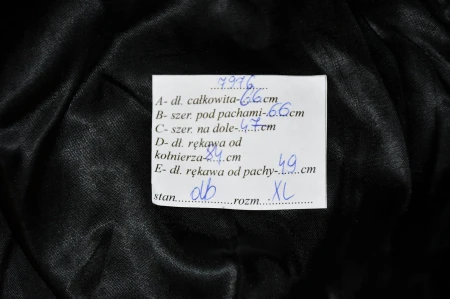 7976
A- dł. całkowita-66cm
B- szer. pod pachami-66cm
C- szer. na dole-47cm
D- dł. rękawa od
kołnierza-84cm
E- dł. rękawa od pachy-49cm
stan db rozm XL